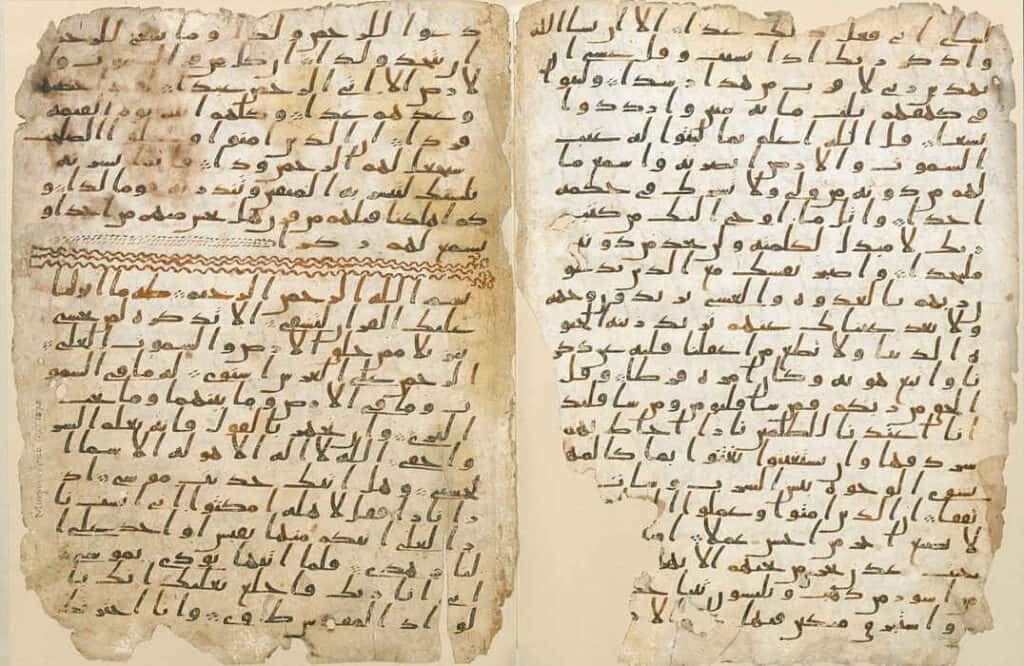 لشاى انى فعل ذلك غدا الا ان يشا الله
واذكر ربك اذا نسيت وقل عسى ان
يهدين ربى لاقرب من هذا رشدا ولبثوا
فى كهفهم ثلث مائة سنين وازدادوا
تسعا قل الله اعلم بما لبثوا له غيب
السموت والارض ابصر به واسمع ما
لهم من دونه من ولى ولا يشرك فى حكمه
احدا واتل ما اوحى اليك من كتب
ربك لا مبدل لكلمته ولن تجد من دونه
ملتحدا واصبر نفسك مع الذين يدعو
ن ربهم بالغدوه والعشى يريدون وجهه
ولا تعد عيناك عنهم تريد زينة الحيو
ة الدنيا ولا تطع من اغفلنا قلبه عن ذكر
نا واتبع هويه وكان امره فرطا وقل
الحق من ربكم فمن شا فليومن ومن شا فليكفر
انا اعتدنا للظلمين نارا احاط بهم
سردقها وان يستغيثوا يغثوا بما كالمهل
يشوى الوجوه بئس الشرب وسات
مرتفقا ان الذين امنوا وعملوا ا
لا نضيع اجر من احسن عملا
جنت عدن تجرى من تحتهم الانهر
من اسور من ذهب ويلبسون ثيابا
واستبرق متكين فيها
دعوا للرحمن ولدا وما ينبغى للرحمن
ان يتخذ ولدا ان كل من فى السموت وا
لارض الا اتى الرحمن عبدا لقد احصيهم
وعدهم عدا وكلهم اتيه يوم القيمة
فردا ان الذين امنوا وعملوا الصلحت
سيجعل لهم الرحمن ودا فانما يسرنه
بلسنك لتبشر به المتقين وتنذر به قوما لدا و
كم اهلكنا قبلهم من قرن هل تحس منهم من احد او
تسمع لهم ركزا
بسم الله الرحمن الرحيم طه ما انزلنا
عليك القران لتشقى الا تذكرة لمن يخشى
تنزيلا ممن خلق الارض والسموت العلى
الرحمن على العرش استوى له ما فى السمو
ت وما فى الارض وما بينهما وما تحت
الثرى وان تجهر بالقول فانه يعلم السر
واخفى الله لا اله الا هو له الاسما ا
لحسنى وهل اتيك حديث موسى اذ
را نارا فقل لاهله امكثوا انى انست نا
را لعلى اتيكم منها بقبس او اجد على ا
لنار هدى فلما اتيها نودى يموسى
انى انا ربك فاخلع نعليك انك با
لواد المقدس طوى وانا اخترتك